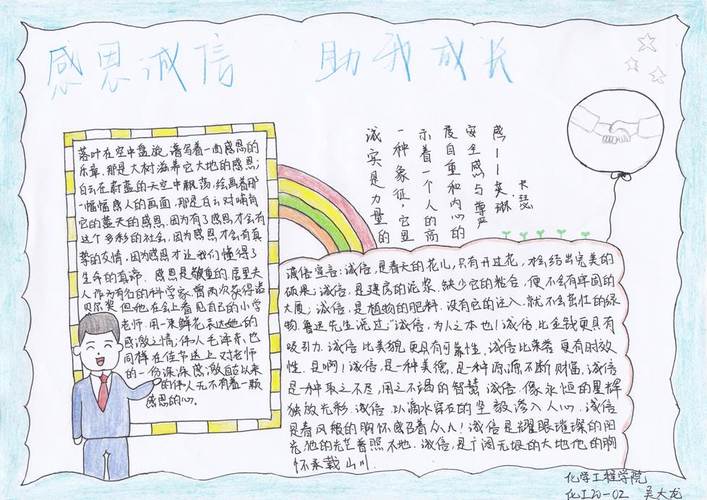 感恩诚信 助我成长
落叶在空中盘旋，谱写着一曲感恩的
乐章，那是大树滋养它大地的感恩；
白云在蔚蓝的天空中飘荡，绘画着那
一幅幅感人的画面，那是白云对哺育
它的蓝天的感恩。因为有了感恩，才会有
这个多彩的社会，因为感恩，才会有真
挚的友情，因为感恩才让我们懂得了
生命的真谛。感恩是敬重的居里夫
人作为有名的科学家，曾两次获得诺
贝尔奖，但他在会上看见自己的小学
老师，用一束鲜花表达她的
感激之情；伟人毛泽东也
同样在佳节送上对老师
的一份深深感激。自古以来
的伟人无不有着一颗
感恩的心。
诚实是力量的
一种象征，它的显
示着一个人的高
度自重和内心的
安全感与尊严
感——
艾琳·卡瑟
诚信宣言：诚信，是春天的花儿，只有开过花，才会结出完美的
硕果；诚信，是建房的泥浆，缺少它的粘合，便不会有牢固的
大厦；诚信，是植物的肥料，没有它的注入，就不会茁壮的绿
物。鲁迅先生说过："诚信，为人之本也！诚信，比金钱更具有
吸引力，诚信，比美貌，更具有可靠性。诚信，比荣誉，更有时效
性。是啊！诚信，是一种美德，是一种源源不断财富，诚信
是一种取之不尽，用之不竭的智慧，诚信，像永恒的星辉
独放光彩，诚信，以滴水穿石的坚毅，渗入人心。诚信
是春风般的胸怀感召着众人！诚信，是耀眼璀璨的阳
光，他的光芒普照大地。诚信，是广阔无垠的大地，他的胸
怀承载山川。
化学工程学院
化工20-02 吴大龙